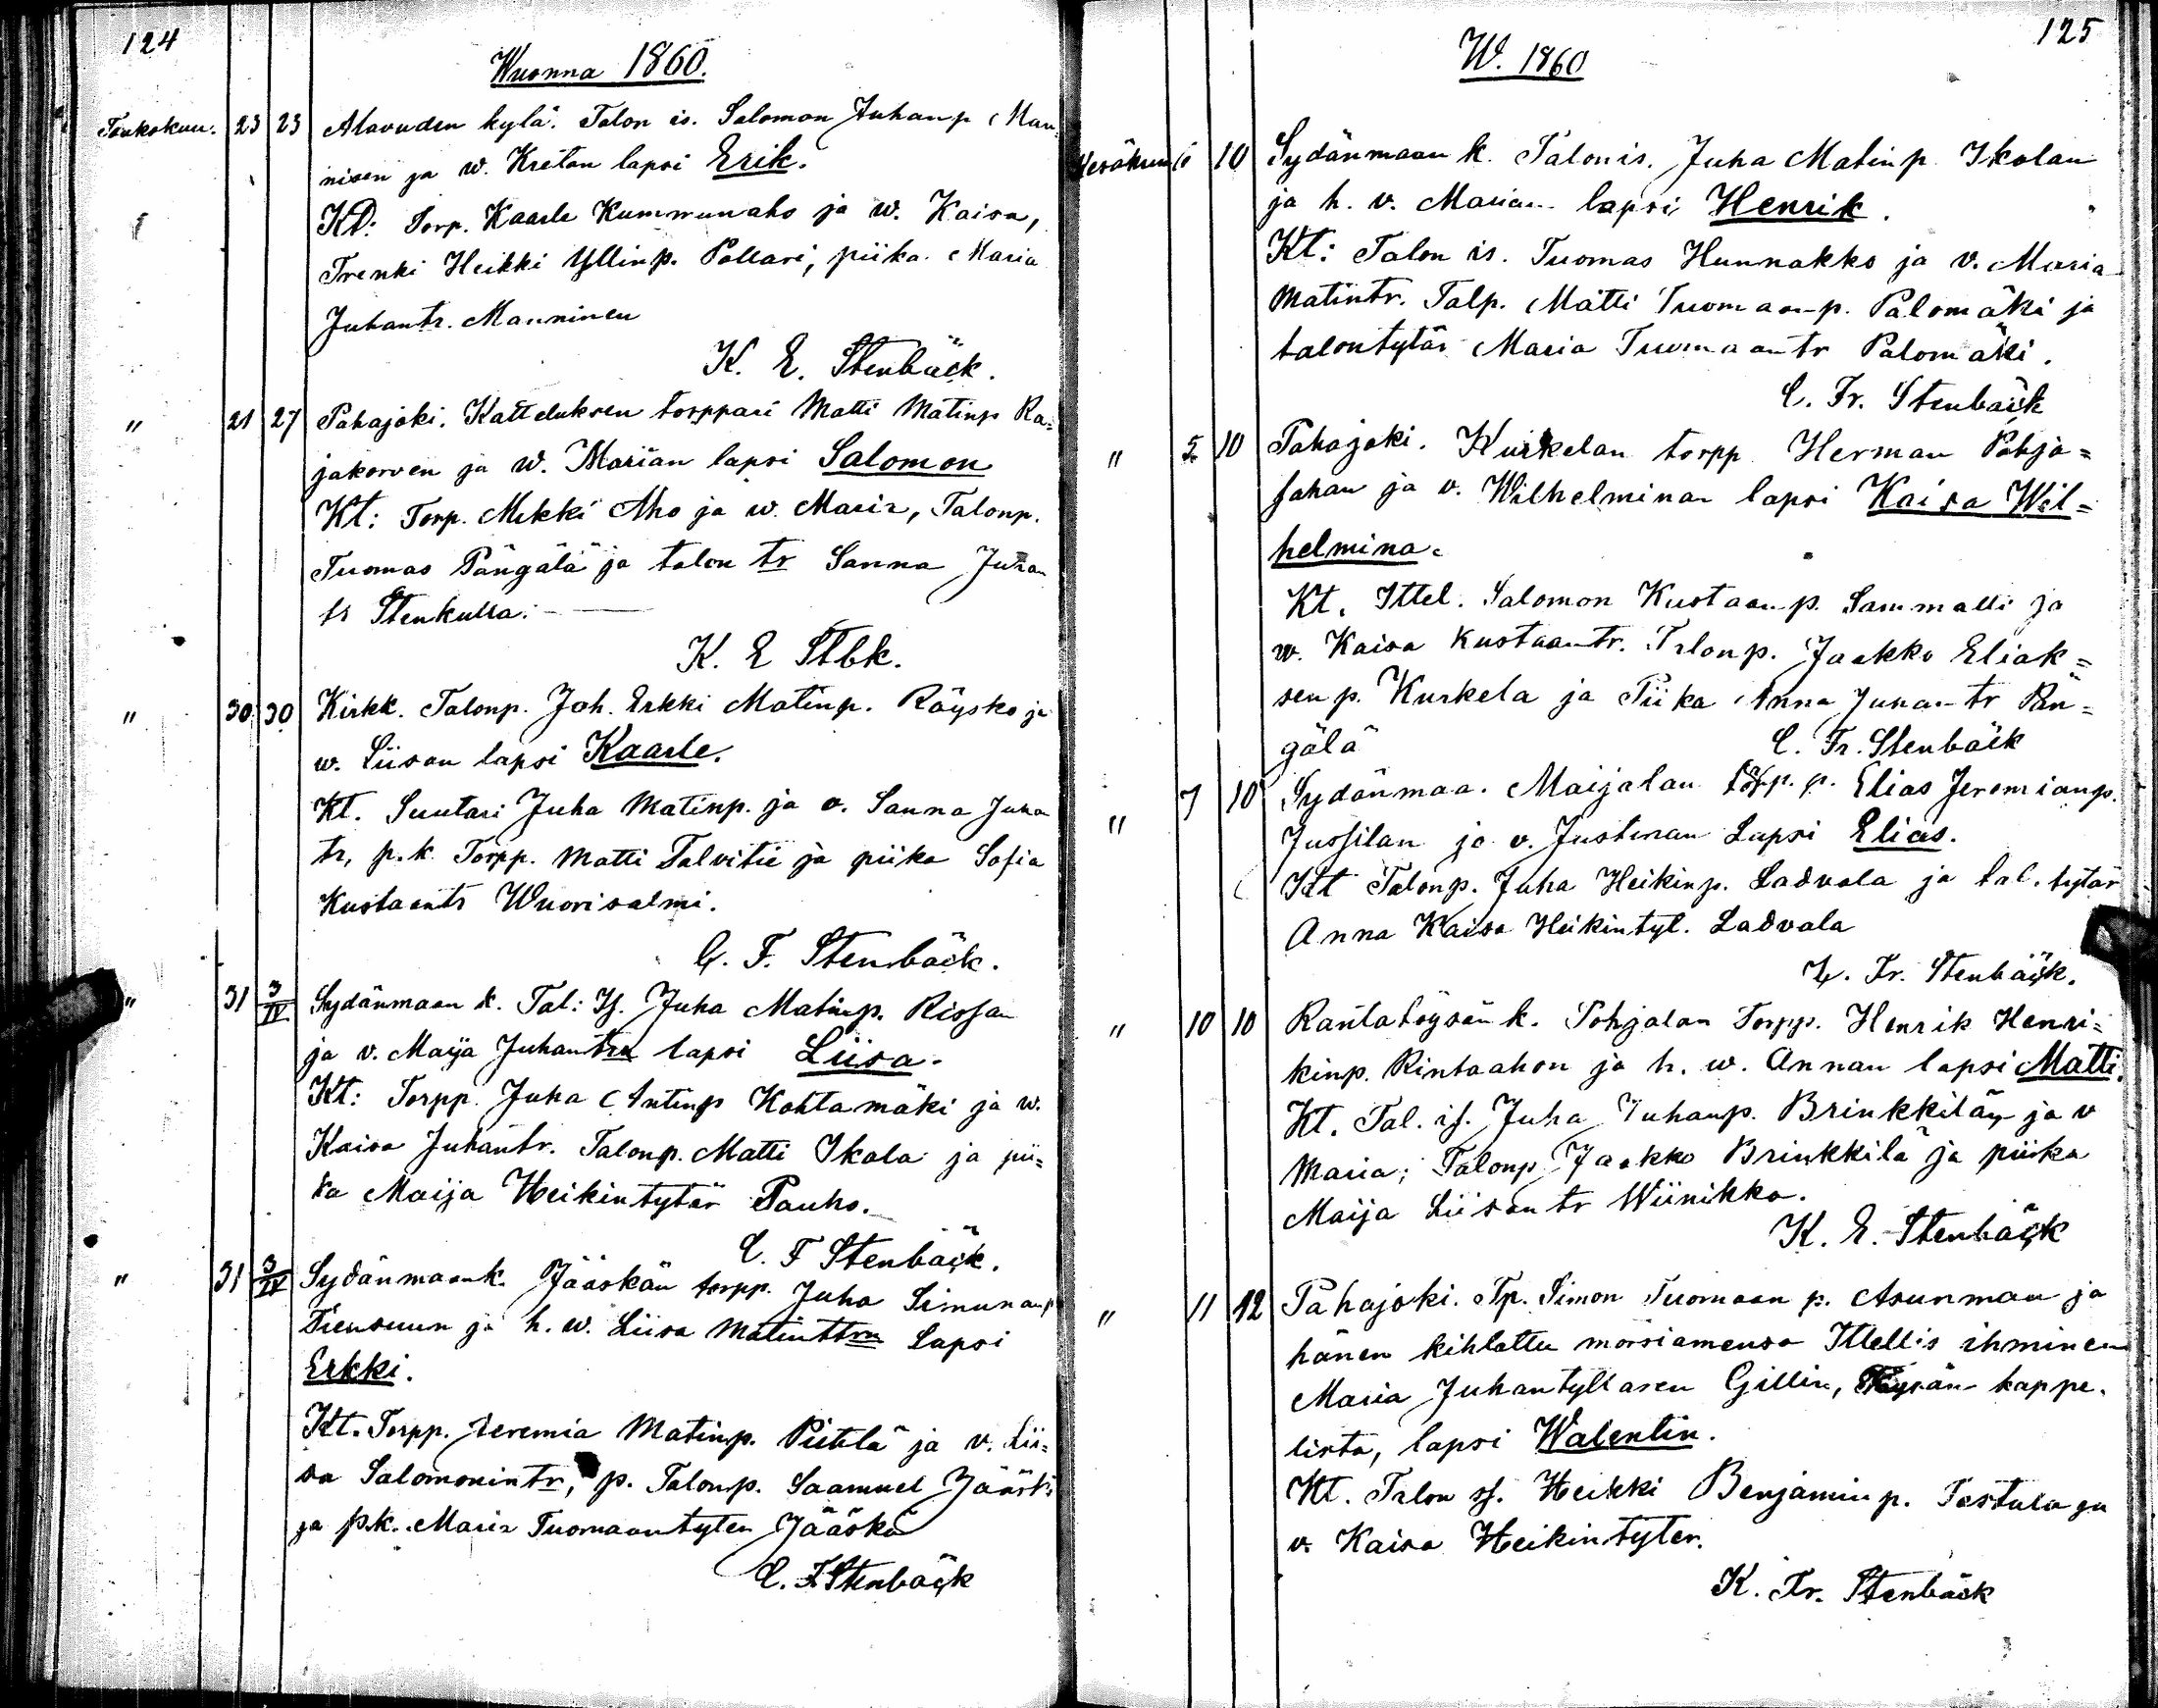 124
Wuonna 1860.
Toukokuu. 23 23 Alavuden kylä. Talon is. Salomon Juhanp Man-
nisen ja w. Kretan lapsi Erik.
KD: Torp. Kaarle Kummunaho ja w. Kaisa,
Trenki Heikki Yllinp. Pollari, piika Maria
Juhantr. Manninen
K. E. Stenbäck.
" 21 27 Pahajoki. Katteluksen torppari Matti Matinp Ra=
jakorven ja w. Marian lapsi Salomon
Kt: Torp. Mikki Aho ja w. Maria, Talonp.
Tuomas Pängälä ja talon tr Sanna Juhan
tr Stenkulla.
K. E Stbk.
" 30 30 Kirkk. Talonp. Joh. Erkki Matinp. Räysko ja
w. Liisan lapsi Kaarle.
Kt. Suutari Juha Matinp. ja v. Sanna Juha
tr, p.k. Torpp. Matti Talvitie ja piika Sofia
Kustaantr Wuorisalmi.
C. F. Stenbäck.
" 31 3/IV Sydänmaan k. Tal: Is. Juha Matinp. Rissan
ja v. Maija Juhantrn lapsi Liisa.
Kt: Torpp. Juha Antinp Kohtamäki ja w.
Kaisa Juhantr. Talonp. Matti Ikola ja pii=
ka Maija Heikintytär Pauho.
C. F Stenbäck.
" 31 3/IV Sydänmaank. Jääskän torpp. Juha Simunanp
Tiensuun ja h. w. Liisa Matinttrn Lapsi
Erkki.
Kt. Torpp. Jeremia Matinp. Pietilä ja v. Lii=
sa Salomonintr, p. Talonp. Saamuel Jääski
ja p.k. Maria Tuomaantyten Jääskä
C. F Stenbäck
125
W. 1860
Kesäkuu 6 10 Sydänmaan k. Talonis. Juha Matinp. Ikolan
ja h. v. Marian lapsi Henrik.
Kt: Talon is. Tuomas Hunnakko ja v. Maria
Matintr. Talp. Matti Tuomaanp. Palomäki ja
talontytär Maria Tuomaantr Palomäki.
C. Fr. Stenbäck
" 5 10 Pahajoki. Kurkelan torpp Herman Pohja=
sahan ja v. Wilhelminan lapsi Kaisa Wil=
helmina.
Kt. Ittel. Salomon Kustaanp. Sammalli ja
w. Kaisa Kustaantr. Talonp. Jaakko Eliak=
sen p. Kurkela ja Piika Anna Juhantr Pän=
gälä C. Fr. Stenbäck
" 7 10 Sydänmaa. Maijalan torp. p. Elias Jeremianp.
Jussilan ja v. Justinan Lapsi Elias.
Kt Talonp. Juha Heikinp. Ladvala ja tal. tytär
Anna Kaisa Heikintyt. Ladvala
C. Fr. Stenbäck.
" 10 10 Rantatöysän k. Pohjalan Torpp. Henrik Henri=
kinp. Rintaahon ja h. w. Annan lapsi Matti.
Kt. Tal. is. Juha Juhanp. Brinkkilän ja v
Maria; Talonp Jaakko Brinkkilä ja piika
Maija Liisantr Wiinikka.
K. E. Stenbäck
" 11 12 Pahajoki. Tp. Simon Tuomaan p. Asunmaa ja
hänen kihlattu morsiamensa Ittellis ihminen
Maria Juhantyttären Gillin, Töysän kappe.
lista, lapsi Walentin.
Kt. Talon is. Heikki Benjamin p. Tastula ja
v. Kaisa Heikintyter.
K. Fr. Stenbäck